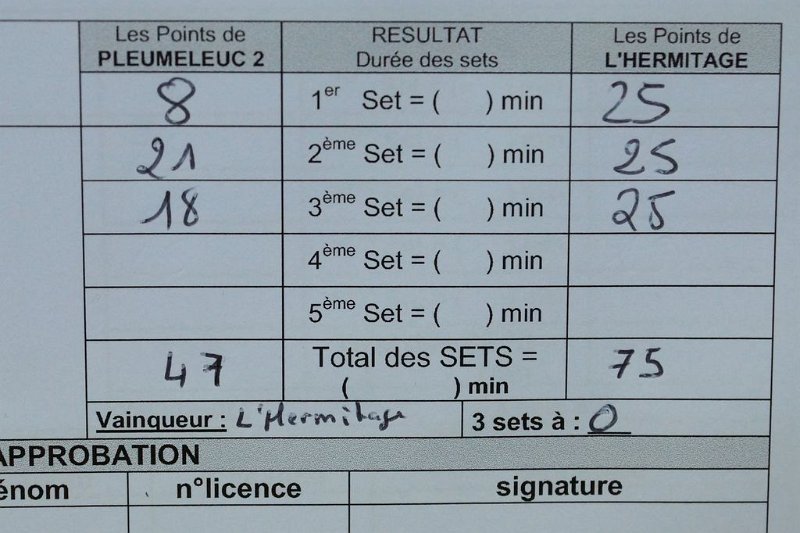 Les Points de PLEUMELEUC 2 RESULTAT Durée des sets Les Points de L'HERMITAGE
8 1er Set = ( ) min 25
21 2ème Set = ( ) min 25
18 3ème Set = ( ) min 25
4ème Set = ( ) min
5ème Set = ( ) min
47 Total des SETS = ( ) min 75
Vainqueur : L'Hermitage 3 sets à : 0
APPROBATION
énom n°licence signature